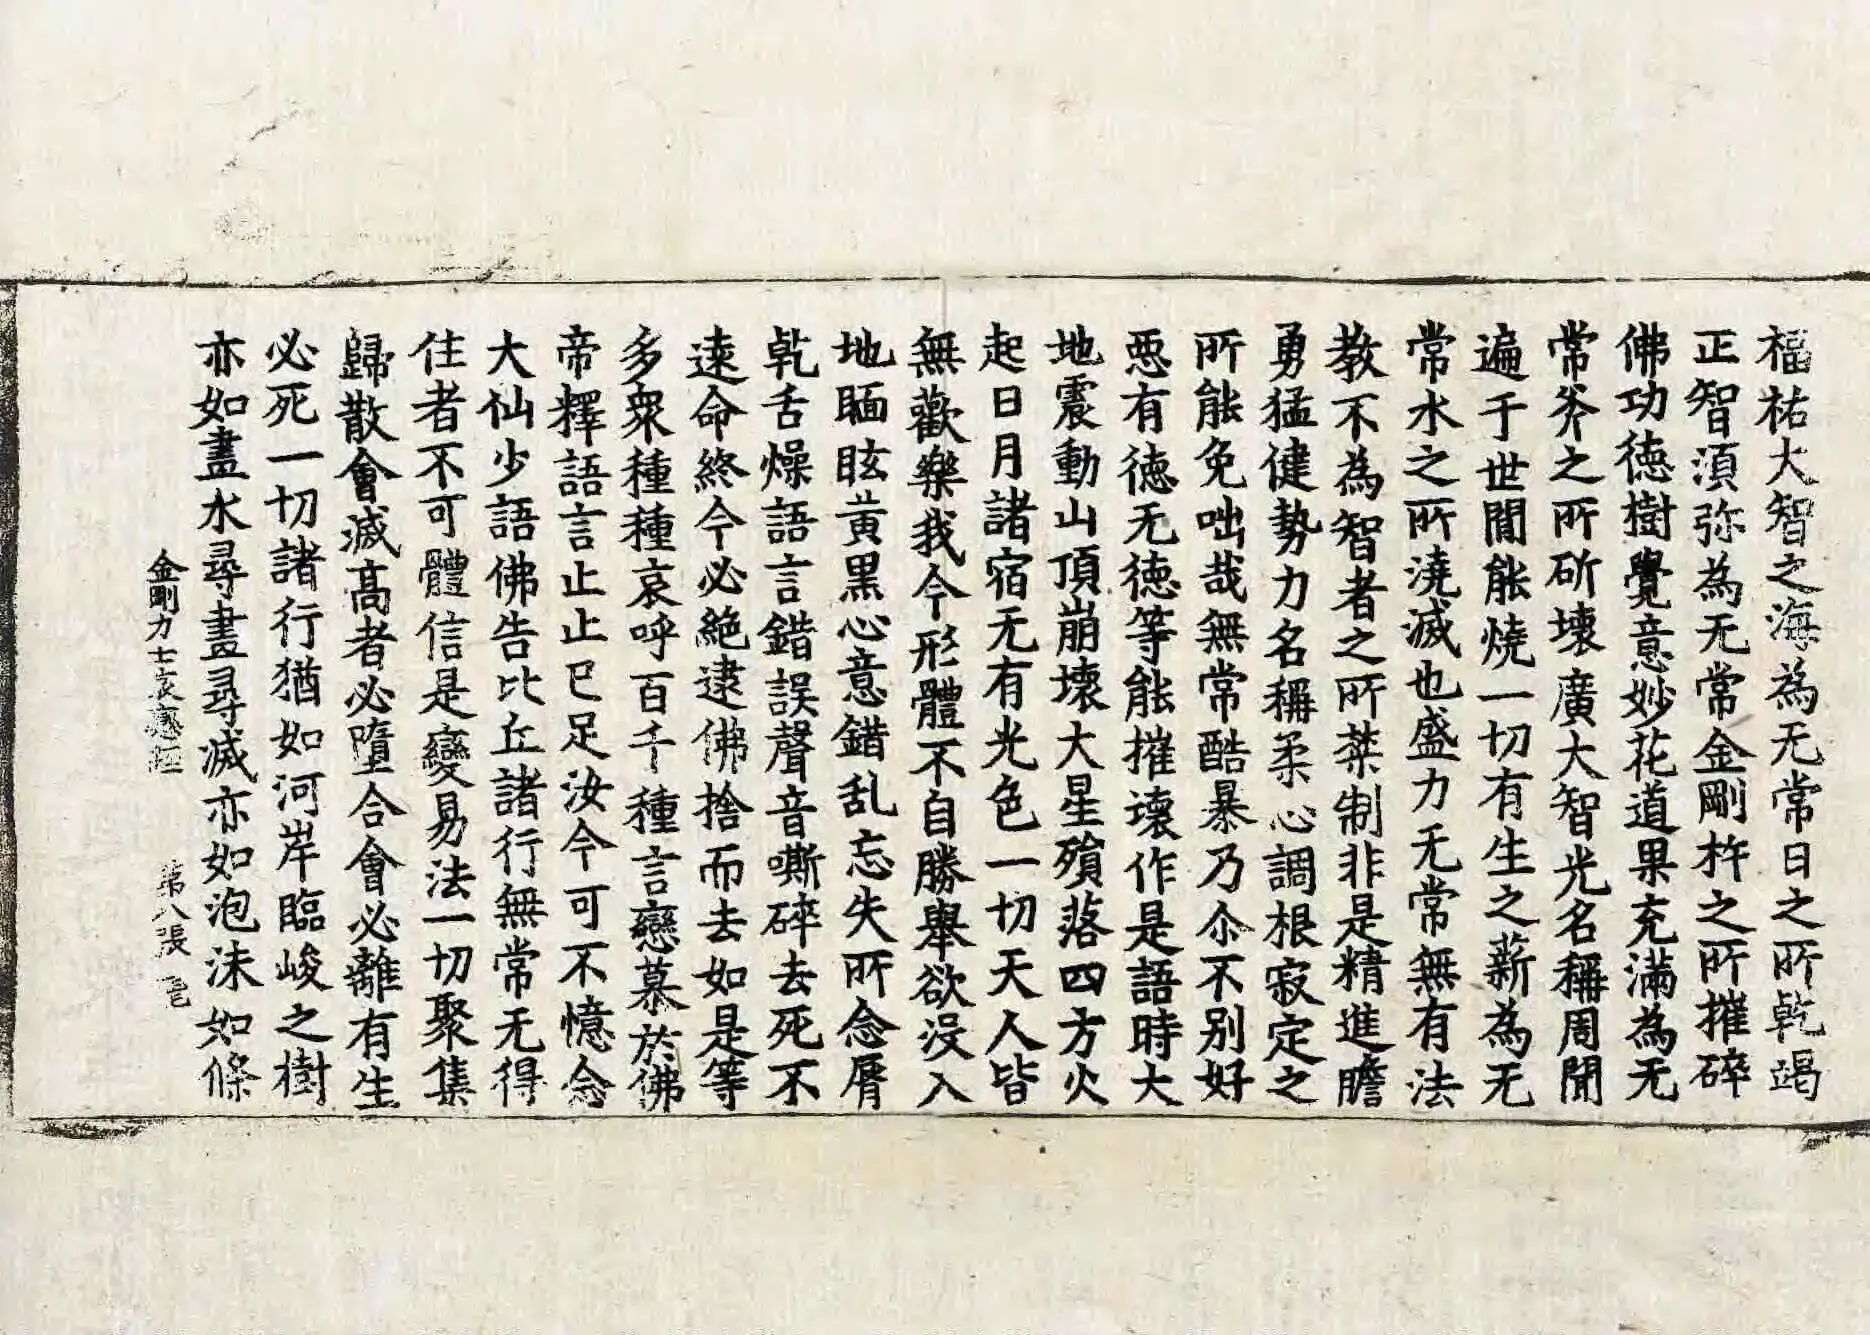 福祐大智之海為无常日之所乾竭
正智湏弥為无常金剛杵之所摧碎
佛功徳樹覺意妙花道果充滿為无
常斧之所斫壞廣大智光名稱周聞
遍于世間能燒一切有生之薪為无
常水之所澆滅也盛力无常無有法
教不為智者之所禁制非是精進瞻
勇猛健勢力名稱柔心調根寂定之
所能免咄哉無常酷暴乃尒不別好
惡有徳无徳等能摧壞作是語時大
地震動山頂崩壞大星殞落四方火
起日月諸宿无有光色一切天人皆
無歡樂我今形體不自勝舉欲没入
地瞤眩黃黑心意錯乱忘失所念脣
乾舌燥語言錯誤聲音嘶碎去死不
遠命終今必絕逮佛捨而去如是等
多眾種種哀呼百千種言戀慕於佛
帝釋語言止止已足汝今可不憶念
大仙少語佛告比丘諸行無常无得
住者不可體信是變易法一切聚集
歸散會滅高者必墮合會必離有生
必死一切諸行猶如河岸臨峻之樹
亦如畫水尋畫尋滅亦如泡沫如條
金剛力士哀戀經 第八張